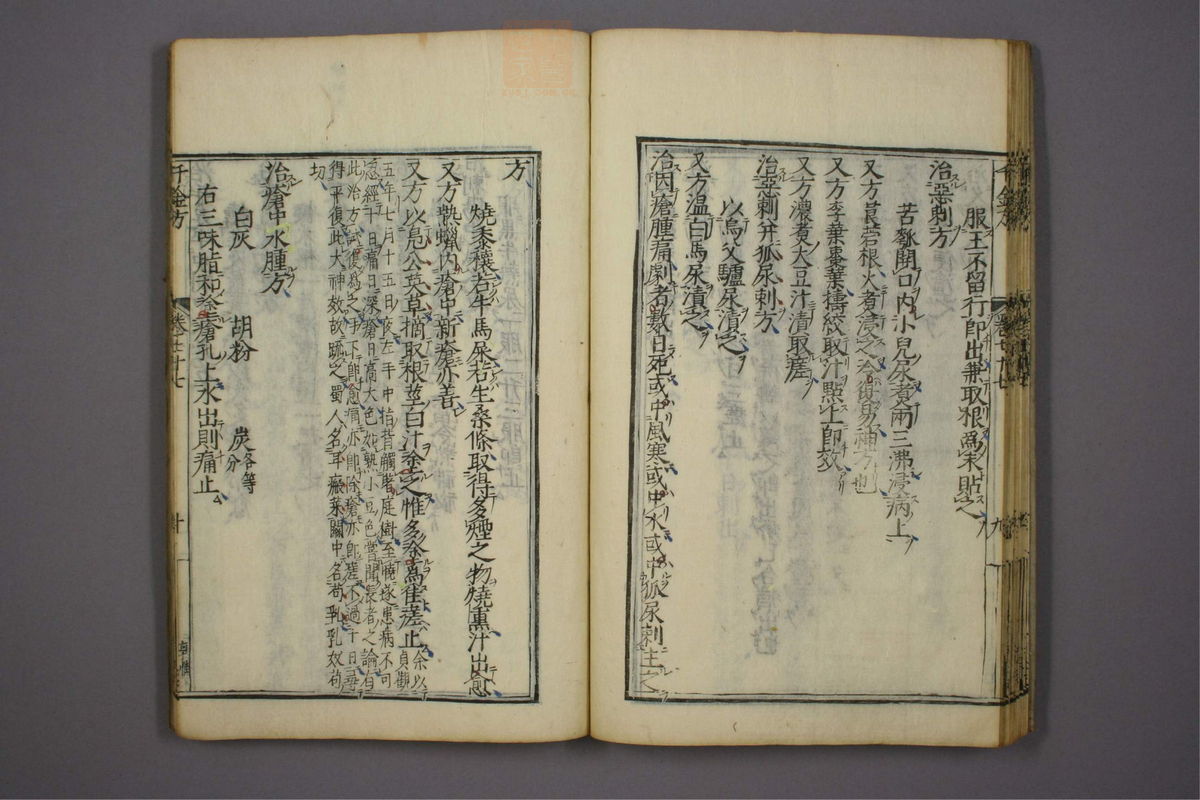 千金方
服王不留行即出兼取根爲末貼之
治惡刺方
苦瓠開口內小兒尿煮兩三沸浸病上
又方莨菪根水煮浸之冷復易神方也
又方李葉棗葉擣絞取汁點上即效
又方濃煮大豆汁漬取瘥
治惡刺并狐尿刺方
以烏父驢尿漬之
又方温白馬尿漬之
治因瘡腫痛劇者數日死或中風寒或中水或中狐尿刺主之
方
燒黍穰若牛馬屎若生桑條取得多煙之物燒熏汁出愈
又方熱蠟內瘡中新瘡亦善
又方以凫公英草摘取根莖白汁塗之惟多塗爲佳差止
余以貞觀
五年七月十五日夜左手中指背觸著庭樹至曉遂患痛不可
忍經十日痛日深瘡日高大色如熟小豆色嘗聞長者之論有
此治方試復爲之手下即愈痛亦即除瘡亦即瘥不過十日尋
得平復此大神效故疏之蜀人名耳瘢菜關中名苟乳
切
治瘡中水腫方
白灰 胡粉 炭各等分
右三味脂和塗瘡孔上水出則痛止
千金方
卷七十七